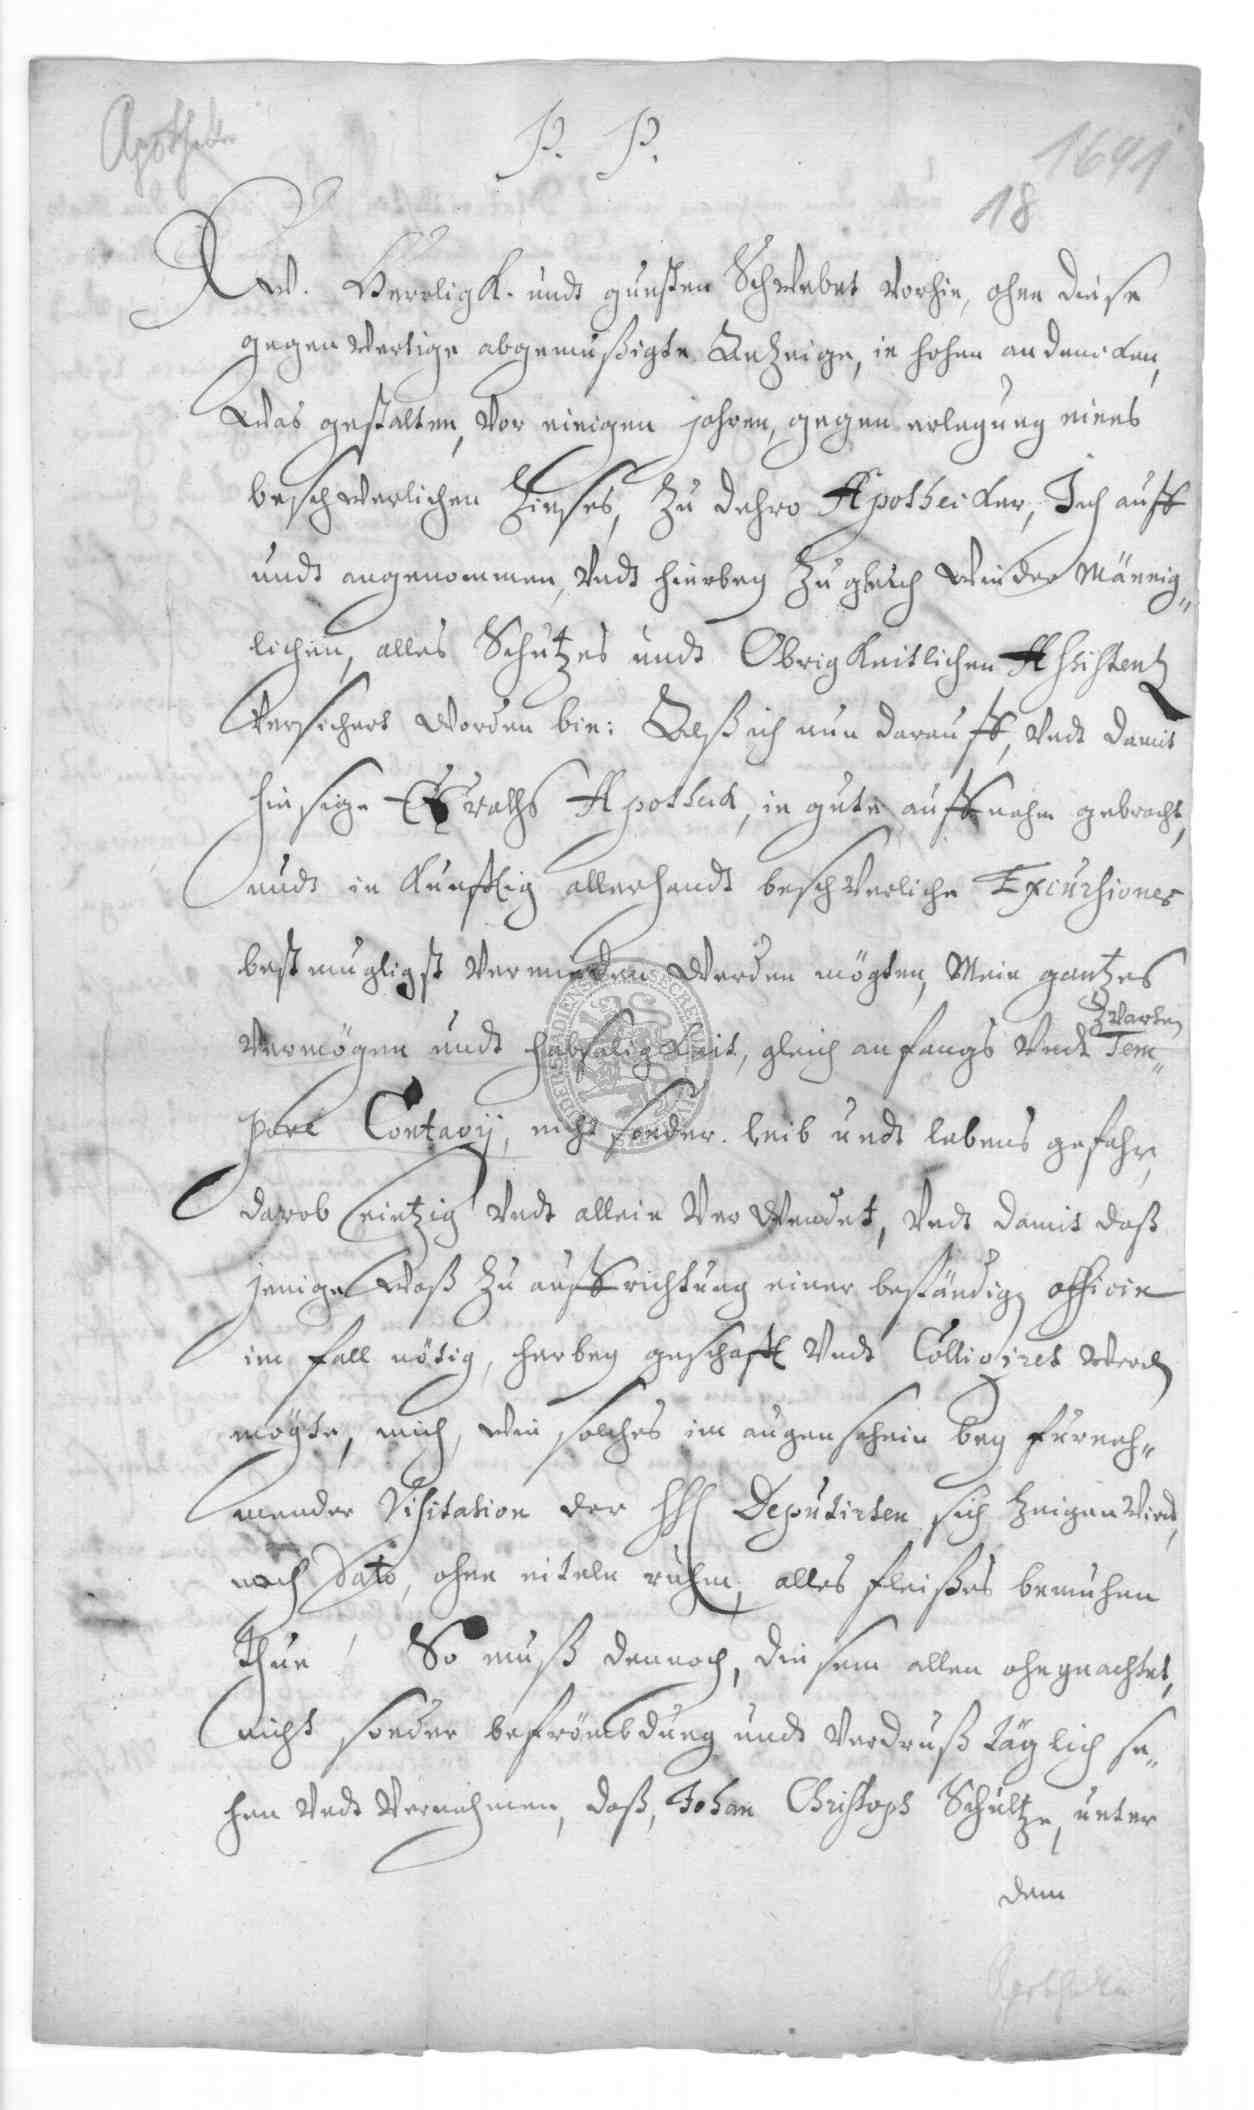 Apothek
1691
P. P.
18
Ew. Herrligk. undt gunsten Schwebet vorhin, ohne diese
gegenwertige abgemüßigte Anzeige, in hohen andencken,
Was gestalten, vor einigen jahren, gegen erlegung eines
beschwerlichen Zinses, Zu dehro Apotheicker, Ich auff
undt angenommen, Undt hierbey Zugleich Wieder Männig„
lichen, alles Schutzes undt Obrigkeitlichen Assistentz
Versichert Worden bin: Ob ich nun darauff, Undt damit
hiesige Raths Apotheck, in gute auffnahm gebracht,
undt in künfftig allerhandt beschwerliche Excursiones
best mugligst vermieden Werden mögten, Mein gantzes
Zwarten
Vermögen undt habseligkeit, gleich anfangs Undt Tem„
pore Contagij, nicht sonder leib undt lebens gefahr,
darob eintzig Undt allein Verwendet, Undt damit daß
jenige Waß Zu auffrichtung einer beständig officin
im fall nötig, herbey geschafft Undt Colligiret Werd
mögte, mich, Wie solches im augenschein bey furneh„
mender Visitation der HH Deputirten sich Zeigen Wird,
nach dato, ohne eiteln ruhm, alles fleißes bemuhen
thue! So muß dennoch, diesem allen ohngeachtet,
nicht sonder befrömbdung undt Verdruß täglich se„
hen Undt Vernehmen, daß, Johan Christoph Schultze, unter
dem
Apotheke